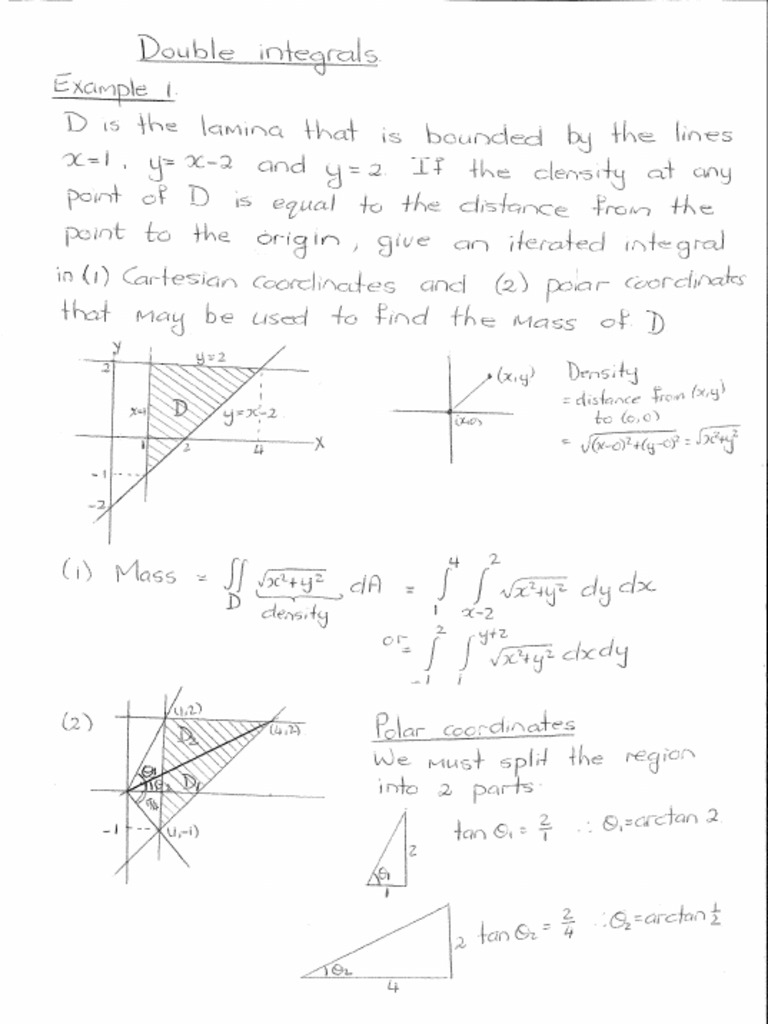 Double integrals.
Example 1.
D is the lamina that is bounded by the lines
x=1, y=x-2 and y=2. If the density at any
point of D is equal to the distance from the
point to the origin, give an iterated integral
in (1) Cartesian coordinates and (2) polar coordinates
that may be used to find the mass of D
y
y=2
2
x=1
D
y=x-2
1
2
4
x
-1
-2
(x,y)
(0,0)
Density
= distance from (x,y)
to (0,0)
= √(x-0)²+(y-0)² = √x²+y²
(1) Mass = ∬_D √x²+y² dA = ∫_1^4 ∫_{x-2}^2 √x²+y² dy dx
density
or = ∫_{-1}^2 ∫_1^{y+2} √x²+y² dx dy
(2)
(1,2)
(4,2)
D₂
θ₁
θ₂
D₁
-1
(1,-1)
Polar coordinates
We must split the region
into 2 parts.
2
θ₁
1
tan θ₁ = 2/1 ∴ θ₁=arctan 2
2
θ₂
4
tan θ₂ = 2/4 ∴ θ₂=arctan 1/2